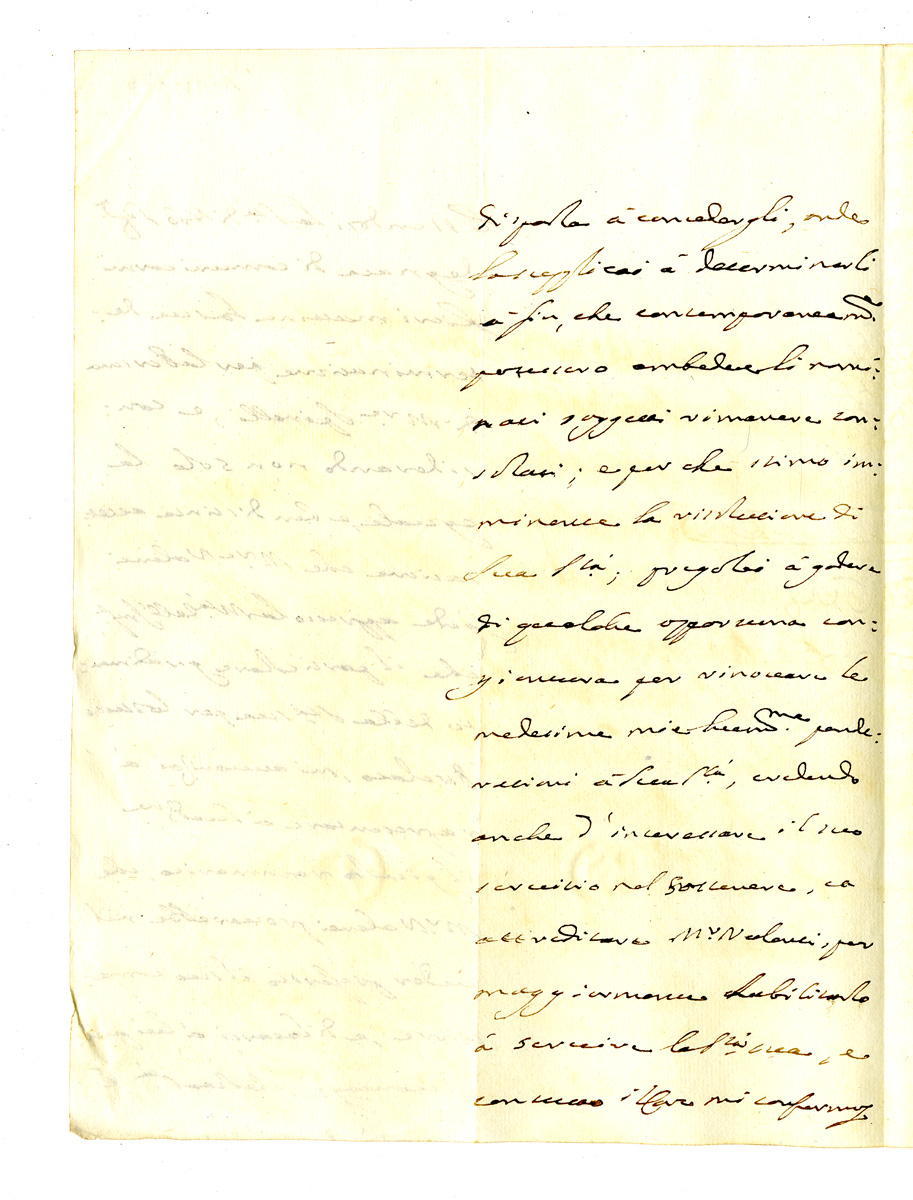 disposta à concedergli, onde
la supplicai à determinarli
à fin, che contemporaneam.te
potessero ambedue li nomi:
nati soggetti rimanere con:
solati; e perche stimo im:
minente la risoluzione di
Sua S.tà; pregolei à godere
di qualche opportuna con:
giontura per rinovare le
medesime mie hum.me ponde:
razioni à Sua S.tà, credendo
anche d'interessare il suo
servitio nel sostenere, ed
accreditare M.r Valenti, per
maggiormente habilitarlo
à servire la S.tà sua, e
con tutto il Core mi confermo